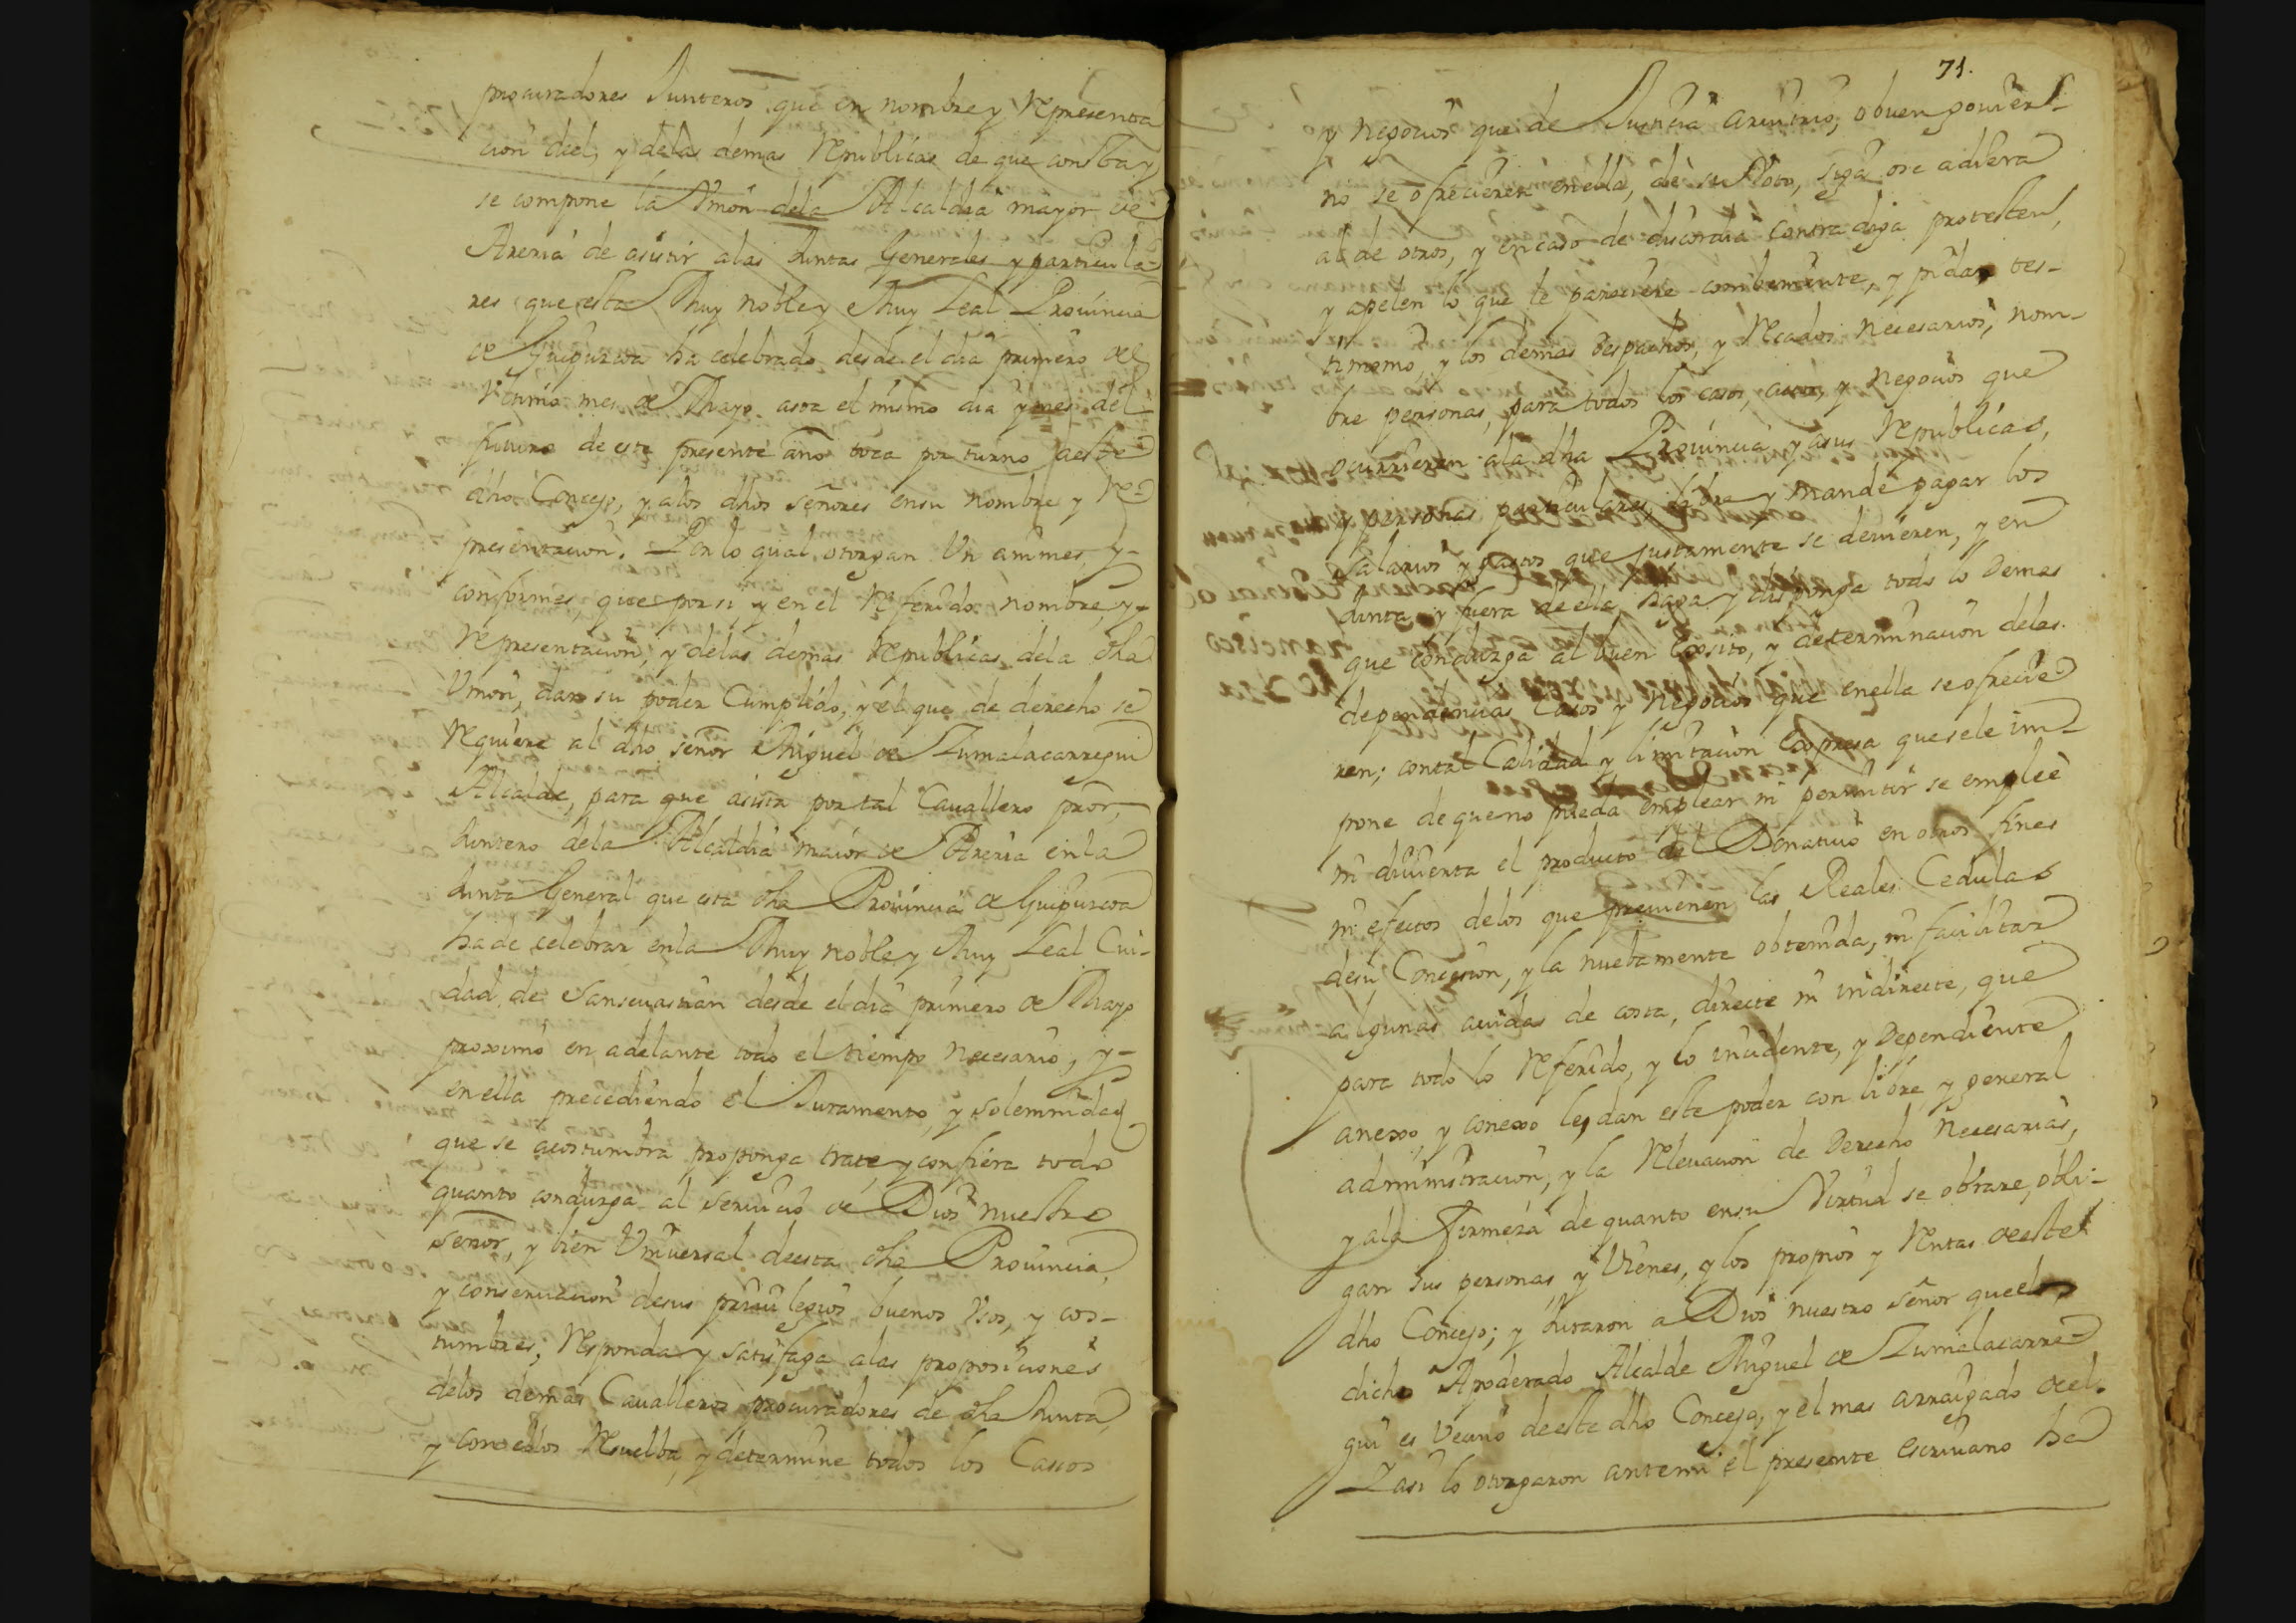 procuradores Junteros que en nombre y representa
cion del, y delas demas Republicas de que consta y
se compone la Vnion dela Alcaldia mayor de
Areria de asistir alas Juntas Generales y particula-
res que esta Muy noble y Muy Leal Prouincia
de Guipuzcoa ha celebrado desde el dia primero del
Vltimo mes de Mayo asta el mismo dia y mes del
futuro de este presente año toca por turno aeste
dho Concejo, y alos dhos señores ensu nombre y re-
presentacion. Por lo qual otorgan Vn animes, y-
conformes, que por si, y en el referido nombre, y-
representacion, y delas demas republicas dela dha
Vnion, dan su poder Cumplido, y el que de derecho se
requiere al dho señor Miguel de Zumalacarregui
Alcalde, para que asista por tal Cauallero pror,
Juntero dela Alcaldia maior de Areria enla
Junta General que esta dha Prouincia de Guipuzcoa
ha de celebrar enla Muy noble y Muy Leal Ciu-
dad de Sanseuastian desde el dia primero de Mayo
proximo en adelante todo el tiempo necesario, y-
enella precediendo el Juramento, y solemnidad
que se acostumbra proponga trate, y confiera todo
quanto conduzga al seruicio de Dios nuestro
señor, y bien Vniuersal deesta dha Prouincia,
y conseruacion desus priuilegios buenos Vsos, y cos-
tumbres, Responda y satisfaga alas proposiciones
delos demas Caualleros procuradores de dha Junta,
y con ellos Resuelba, y determine todos los Casos
71.
y negocios que de Justicia arvitrio, o buen gouier-
no se ofrecieren enella, de su Voto, siga o se adiera
al de otros, y en caso de discordia contradiga protesten,
y apelen lo que le pareciere combeniente, y pidan tes-
timonio, y los demas despachos, y Recados necesarios, nom-
bre personas, para todos los casos, y negocios que
ocurrieren ala dha Prouincia, y asus Republicas,
y personas particulares, y mande pagar los
salarios y gastos que justamente se deuieren, y en
Junta, y fuera de ella haga, y disponga todo lo demas
que conduzga al buen exsito, y determinacion delas
dependencias Casos y negocios que enella se ofrecie-
ren; con tal Calidad y limitacion expresa que sele im-
pone de que no pueda emplear ni permitir se emplee
ni diuierta el producto del Donatiuo en otros fines
ni efectos delos que preuienen las Reales Cedulas
desu Concesion, y la nuebamente obtenida, ni facilitar
algunas aiudas de costa, directe ni indirecte, que
para todo lo Referido, y lo incidente, y Dependiente
anexo, y conexo le dan este poder con libre y general
administracion, y la Releuacion de Derecho necesarias,
y ala firmeza de quanto ensu Virtud se obrare, obli-
gan sus personas, y Vienes, y los propios y Rentas deeste
dho Concejo; y Juraron a Dios nuestro señor que el
dicho Apoderado Alcalde Miguel de Zumalacarre-
gui es Vecino deeste dho Concejo, y el mas arraigado del.
Y asi lo otorgaron ante mi el presente escriuano ha